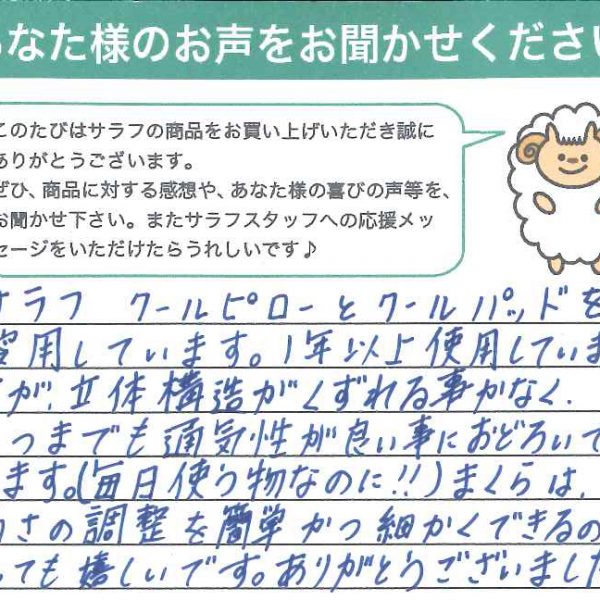 なた様のお声をお聞かせください
このたびはサラフの商品をお買い上げいただき誠に
ありがとうございます。
ぜひ、商品に対する感想や、あなた様の喜びの声等を、
お聞かせ下さい。またサラフスタッフへの応援メッ
セージをいただけたらうれしいです♪
サラフ クールピローとクールパッドを
愛用しています。1年以上使用していま
が、立体構造がくずれる事がなく、
つまでも通気性が良い事におどろいて
ます。(毎日使う物なのに!!)まくらは、
さの調整を簡単かつ細かくできるの
ても嬉しいです。ありがとうございました